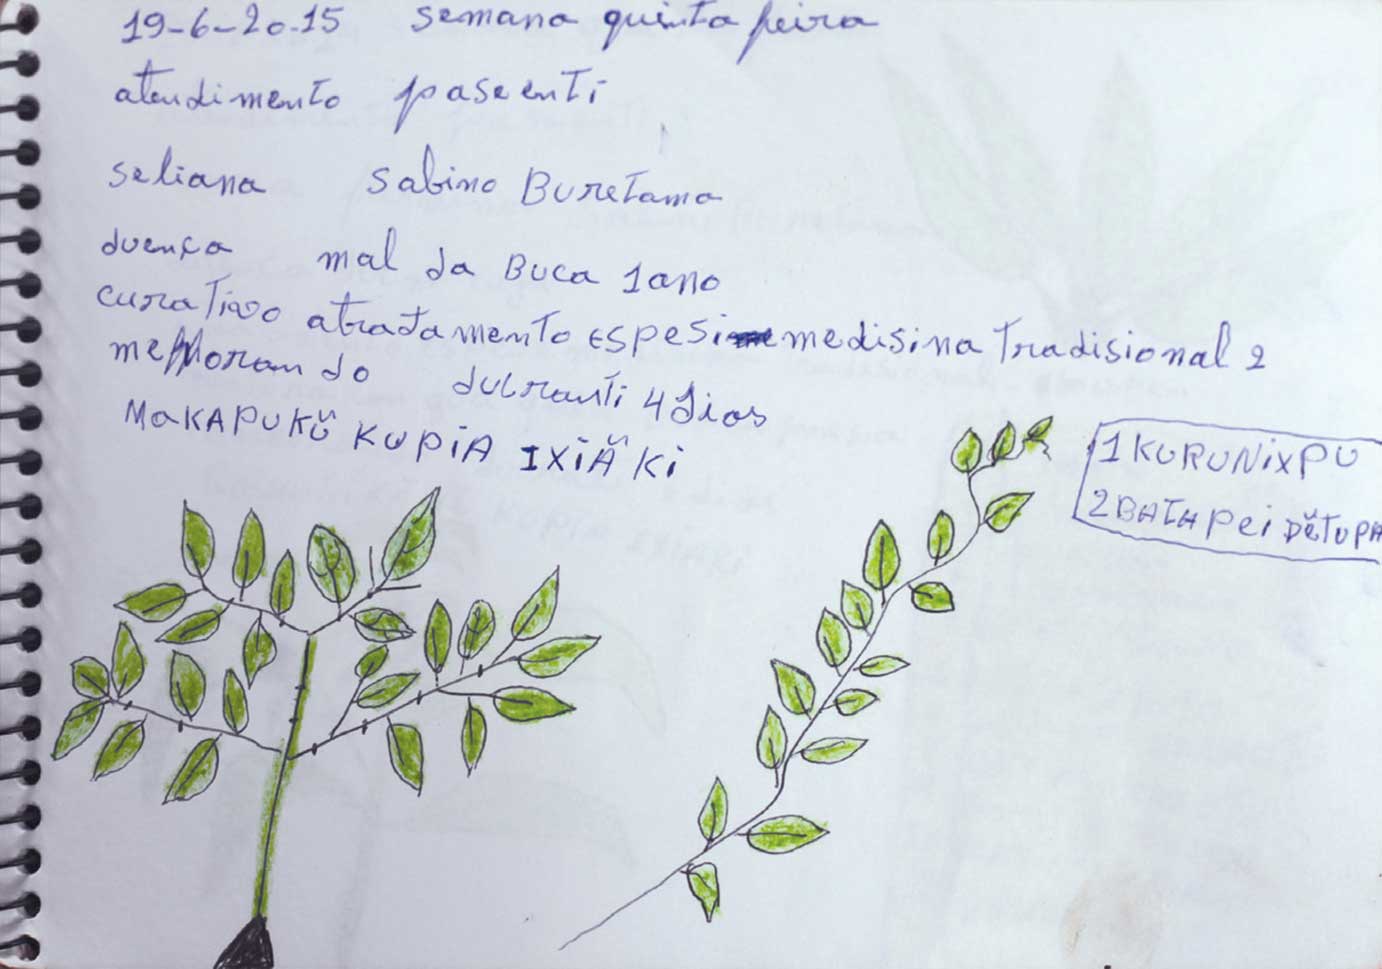 19-6-20.15 semana quinta feira
atendimento pasenti
seliana sabino Buretama
duença mal da Buca 1ano
curativo atratamento ESPESi medisina Tradisional 2
melhorando duranti 4 dias
MaKAPUKŨ KUPiA IXiÃKi
1 KURUNixPU
2 BATAPei DĕTUPA